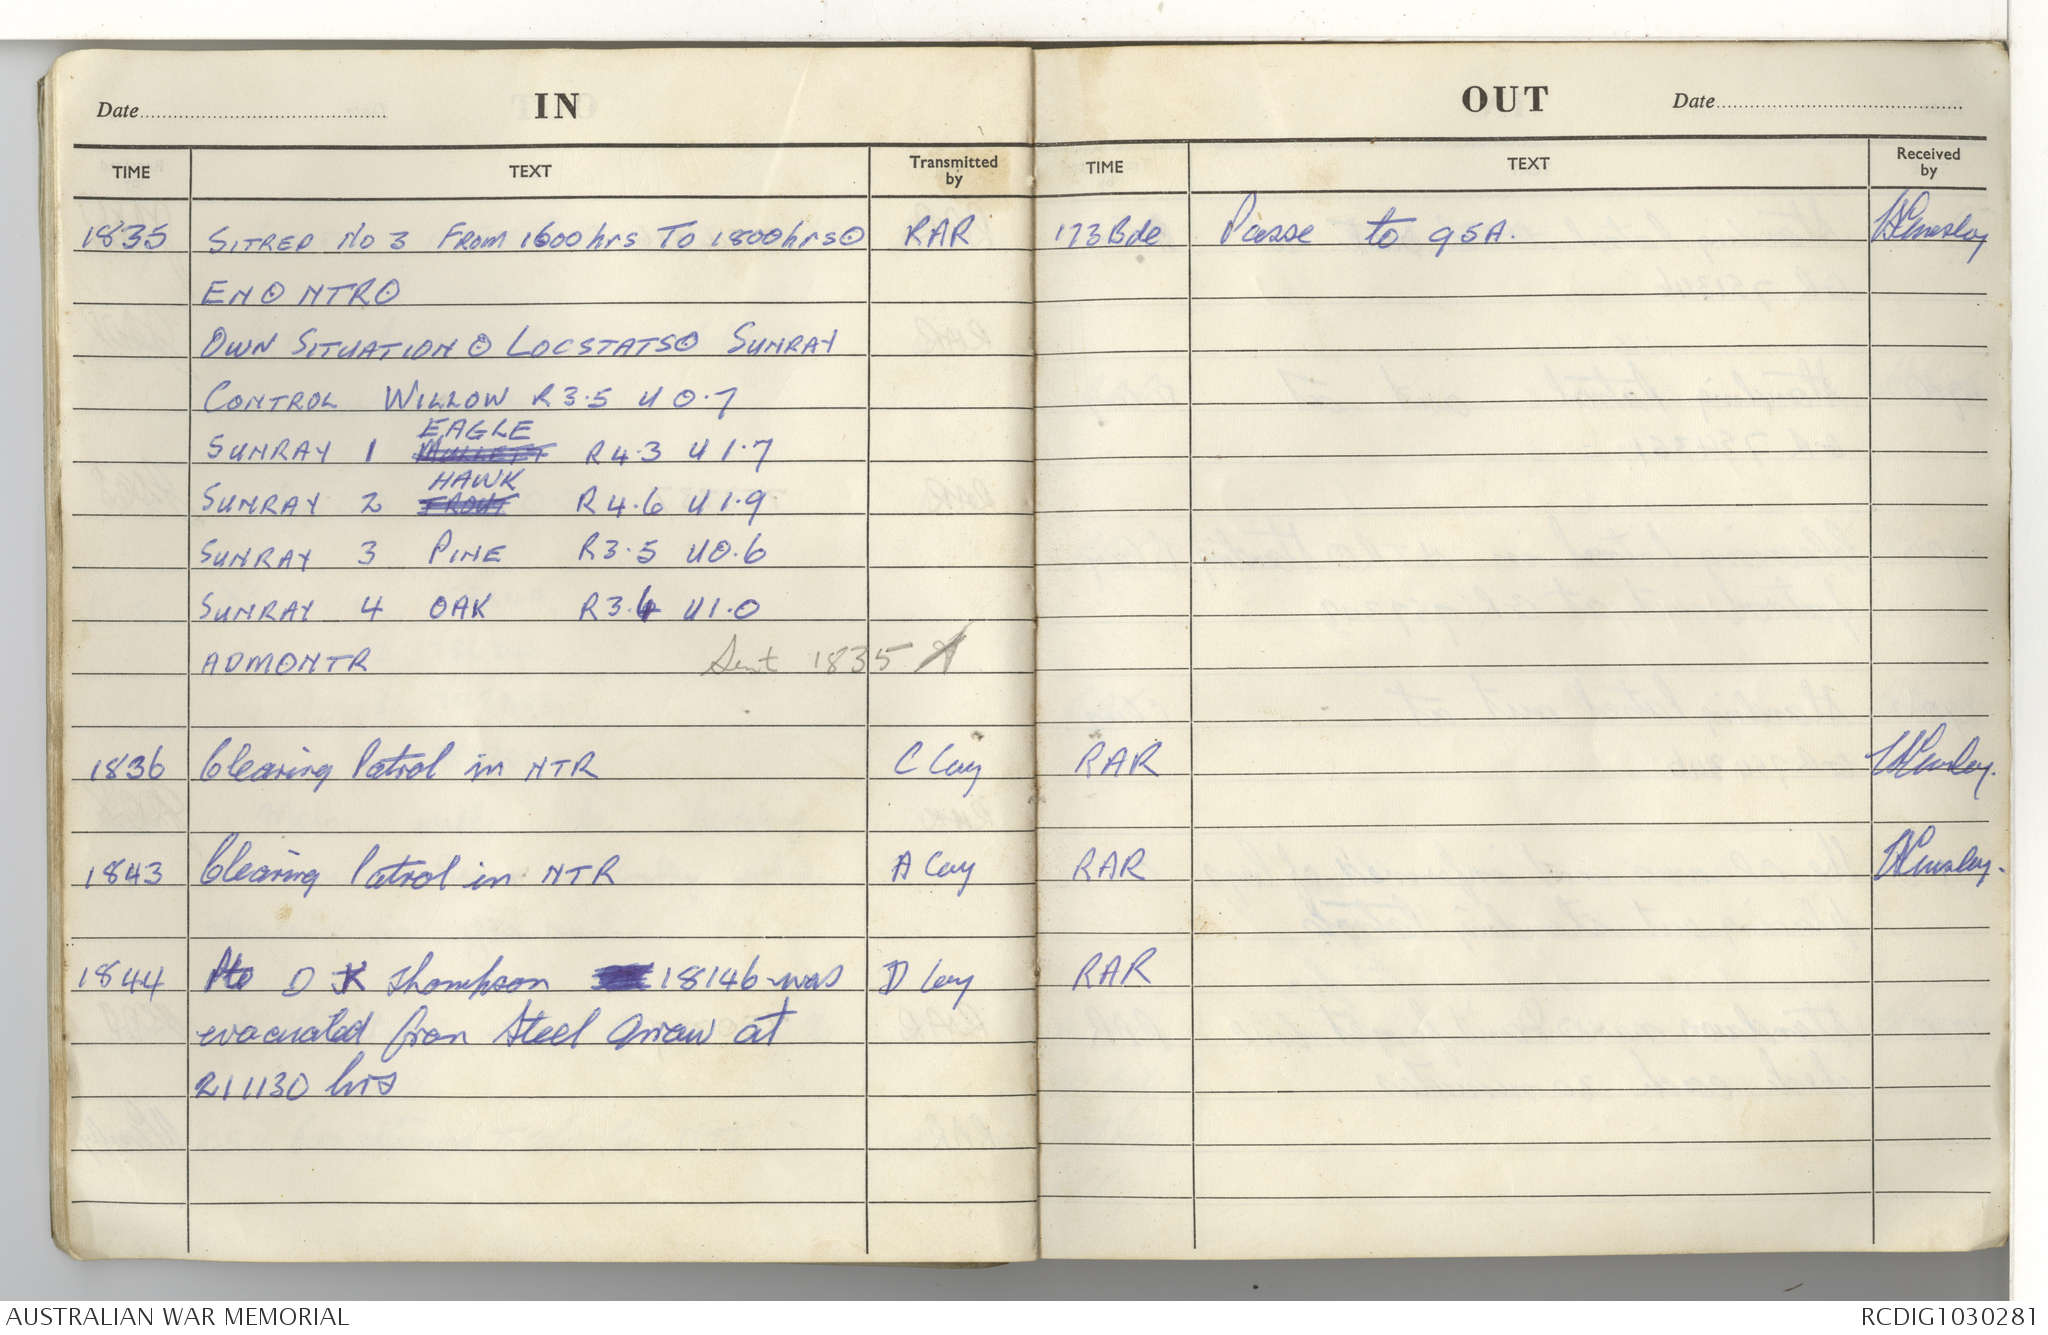 Date IN
TIME TEXT Transmitted by
1835 SITREP NO 3 FROM 1600hrs TO 1800hrs⊙ RAR
EN⊙ NTR⊙
OWN SITUATION⊙ LOCSTATS⊙ SUNRAY
CONTROL WILLOW R3.5 U0.7
EAGLE
SUNRAY 1 R4.3 U1.7
HAWK
SUNRAY 2 TROUT R4.6 U1.9
SUNRAY 3 PINE R3.5 U0.6
SUNRAY 4 OAK R3.4 U1.0
ADM⊙NTR Sent 1835
1836 Clearing Patrol in NTR C Coy
1843 Clearing Patrol in NTR A Coy
1844 Pte D K Thompson 18146 was D Coy
evacuated from Steel Arrow at
211130 hrs
OUT Date
TIME TEXT Received by
173 Bde Passe to G5A.
RAR
RAR
RAR
AUSTRALIAN WAR MEMORIAL RCDIG1030281